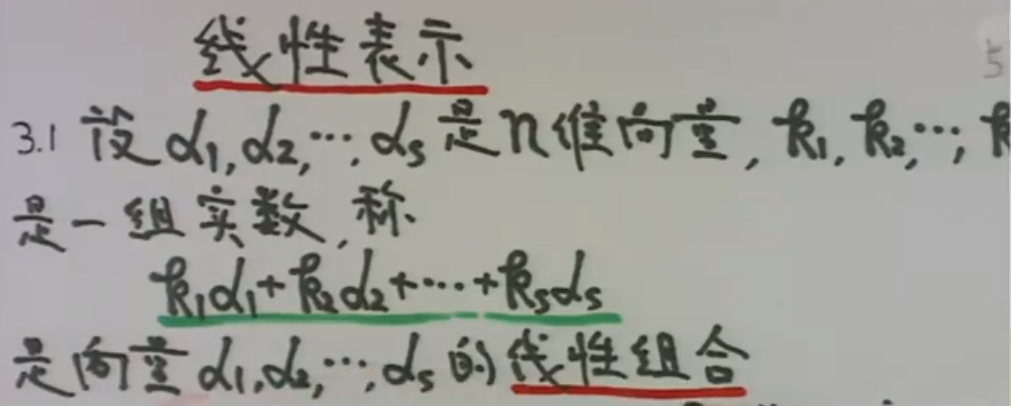 线性表示
5
3.1 设α₁,α₂,…,αₛ是n维向量,k₁,k₂,…,k
是一组实数,称
k₁α₁+k₂α₂+……+kₛαₛ
是向量α₁,α₂,…,αₛ的线性组合